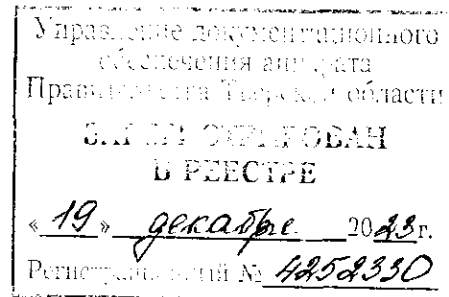 Управление документационного
обеспечения аппарата
Правительства Тверской области
ЗАРЕГИСТРИРОВАН
В РЕЕСТРЕ
« 19 » декабре 2023г.
Регистрационный № 4252330